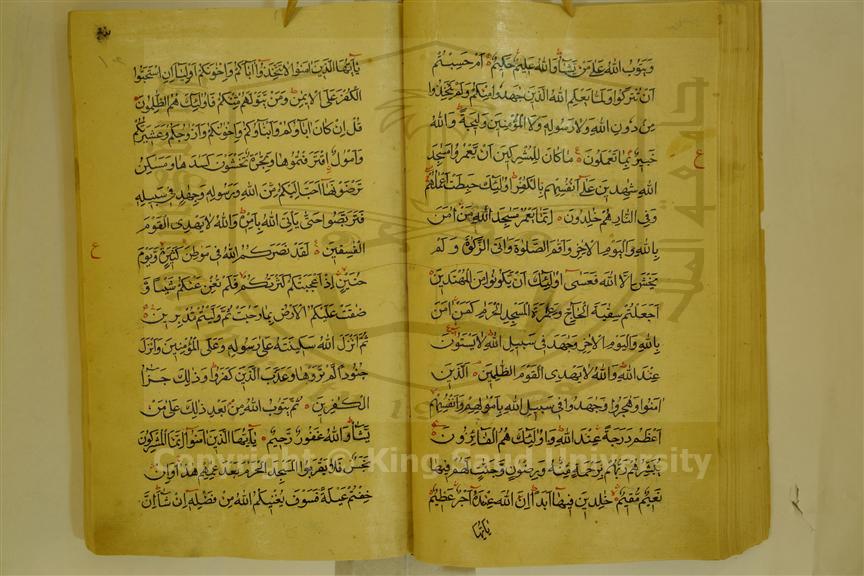 ويتوب الله على من يشاء والله عليم حكيم ام حسبتم
ان تتركوا ولما يعلم الله الذين جهدوا منكم ولم يتخذوا
من دون الله ولا رسوله ولا المؤمنين وليجة والله
خبير بما تعملون ما كان للمشركين ان يعمروا مسجد
الله شهدين على انفسهم بالكفر اولئك حبطت اعمالهم
وفي النار هم خلدون انما يعمر مسجد الله من امن
بالله واليوم الاخر واقام الصلوة واتى الزكوة ولم
يخش الا الله فعسى اولئك ان يكونوا من المهتدين
اجعلتم سقاية الحاج وعمارة المسجد الحرام كمن امن
بالله واليوم الاخر وجهد في سبيل الله لا يستون
عند الله والله لا يهدى القوم الظلمين الذين
امنوا وهجروا وجهدوا في سبيل الله باموالهم وانفسهم
اعظم درجة عند الله واولئك هم الفائزون
يبشرهم ربهم برحمة منه ورضون وجنت لهم فيها
نعيم مقيم خلدين فيها ابدا ان الله عنده اجر عظيم
يايها
ع
يايها الذين امنوا لا تتخذوا اباكم واخونكم اولياء ان استحبوا
الكفر على الايمن ومن يتولهم منكم فاولئك هم الظلمون
قل ان كان اباؤكم وابناؤكم واخونكم وازوجكم وعشيرتكم
واموال اقترفتموها وتجرة تخشون كسادها ومسكن
ترضونها احب اليكم من الله ورسوله وجهاد في سبيله
فتربصوا حتى ياتى الله بامره والله لا يهدى القوم
الفسقين لقد نصركم الله في مواطن كثيرة ويوم
حنين اذ اعجبتكم كثرتكم فلم تغن عنكم شيئا و
ضاقت عليكم الارض بما رحبت ثم وليتم مدبرين
ثم انزل الله سكينته على رسوله وعلى المؤمنين وانزل
جنودا لم تروها وعذب الذين كفروا وذلك جزاء
الكفرين ثم يتوب الله من بعد ذلك على من
يشاء والله غفور رحيم يايها الذين امنوا انما المشركون
نجس فلا يقربوا المسجد الحرام بعد عامهم هذا وان
خفتم عيلة فسوف يغنيكم الله من فضله ان شاء ان
ع
Copyright © King Saud University